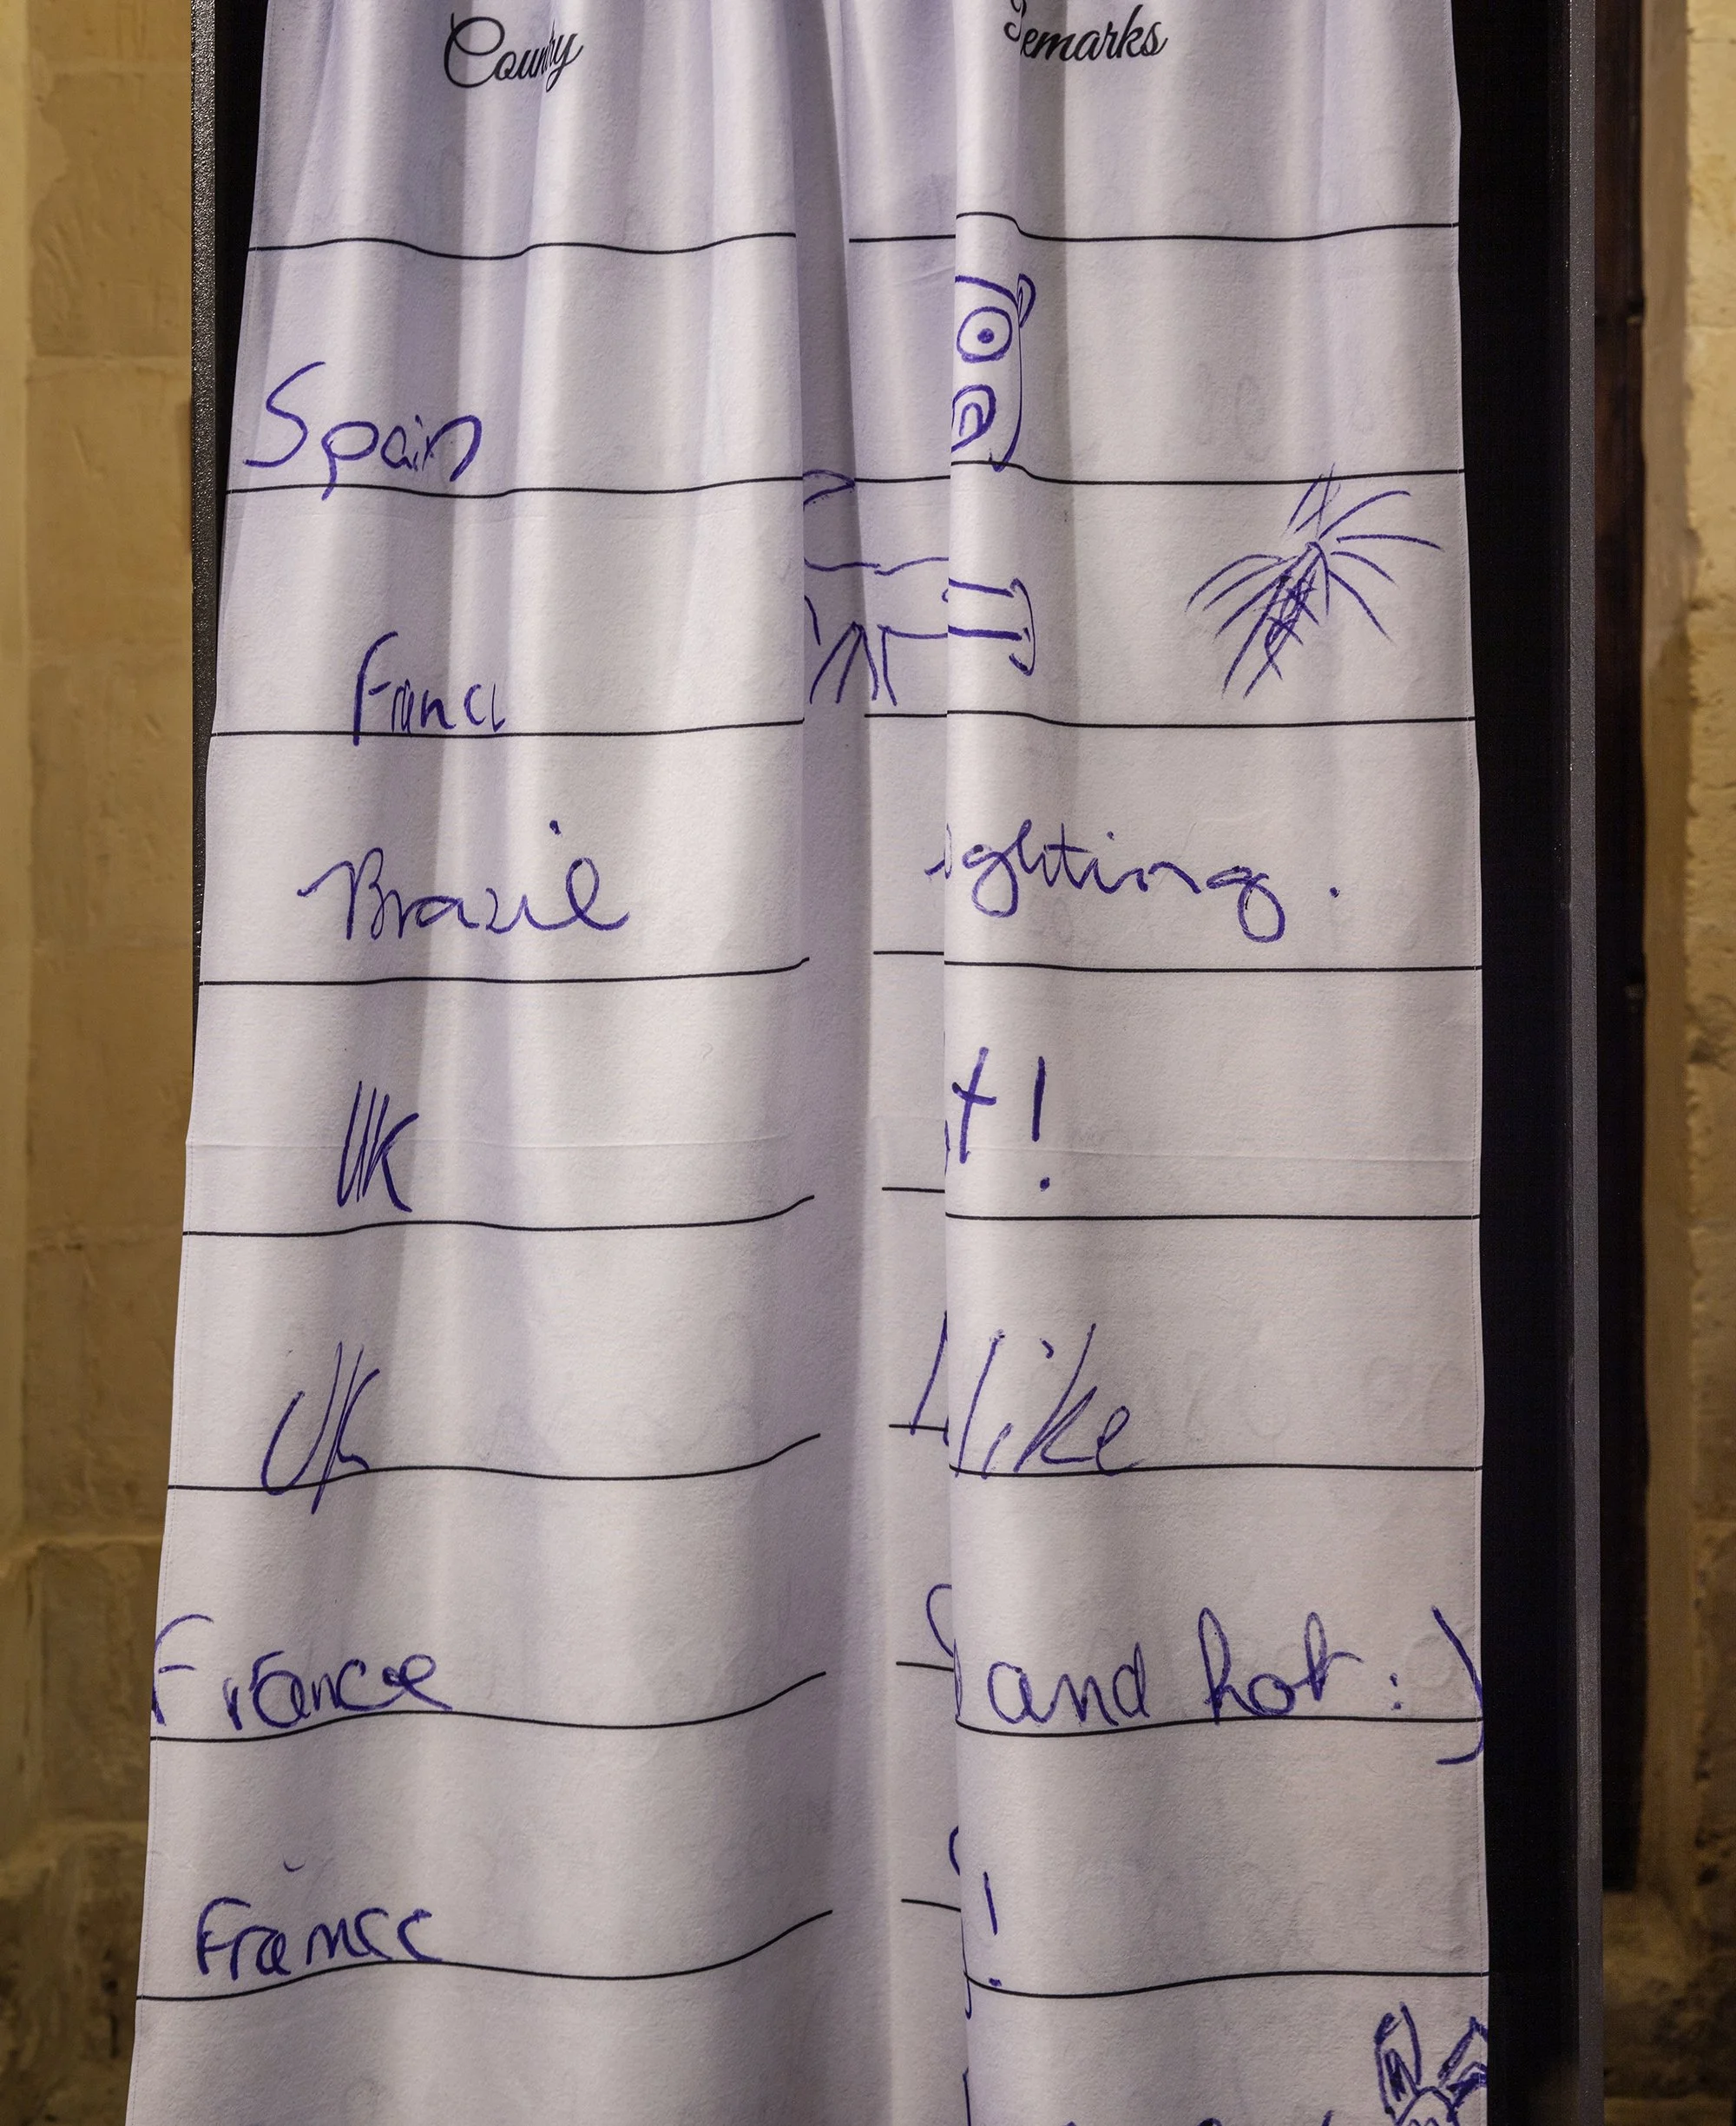 Country Remarks
Spain
Franc
Brazil ighting.
UK t!
UK I like
France and hot :)
France !